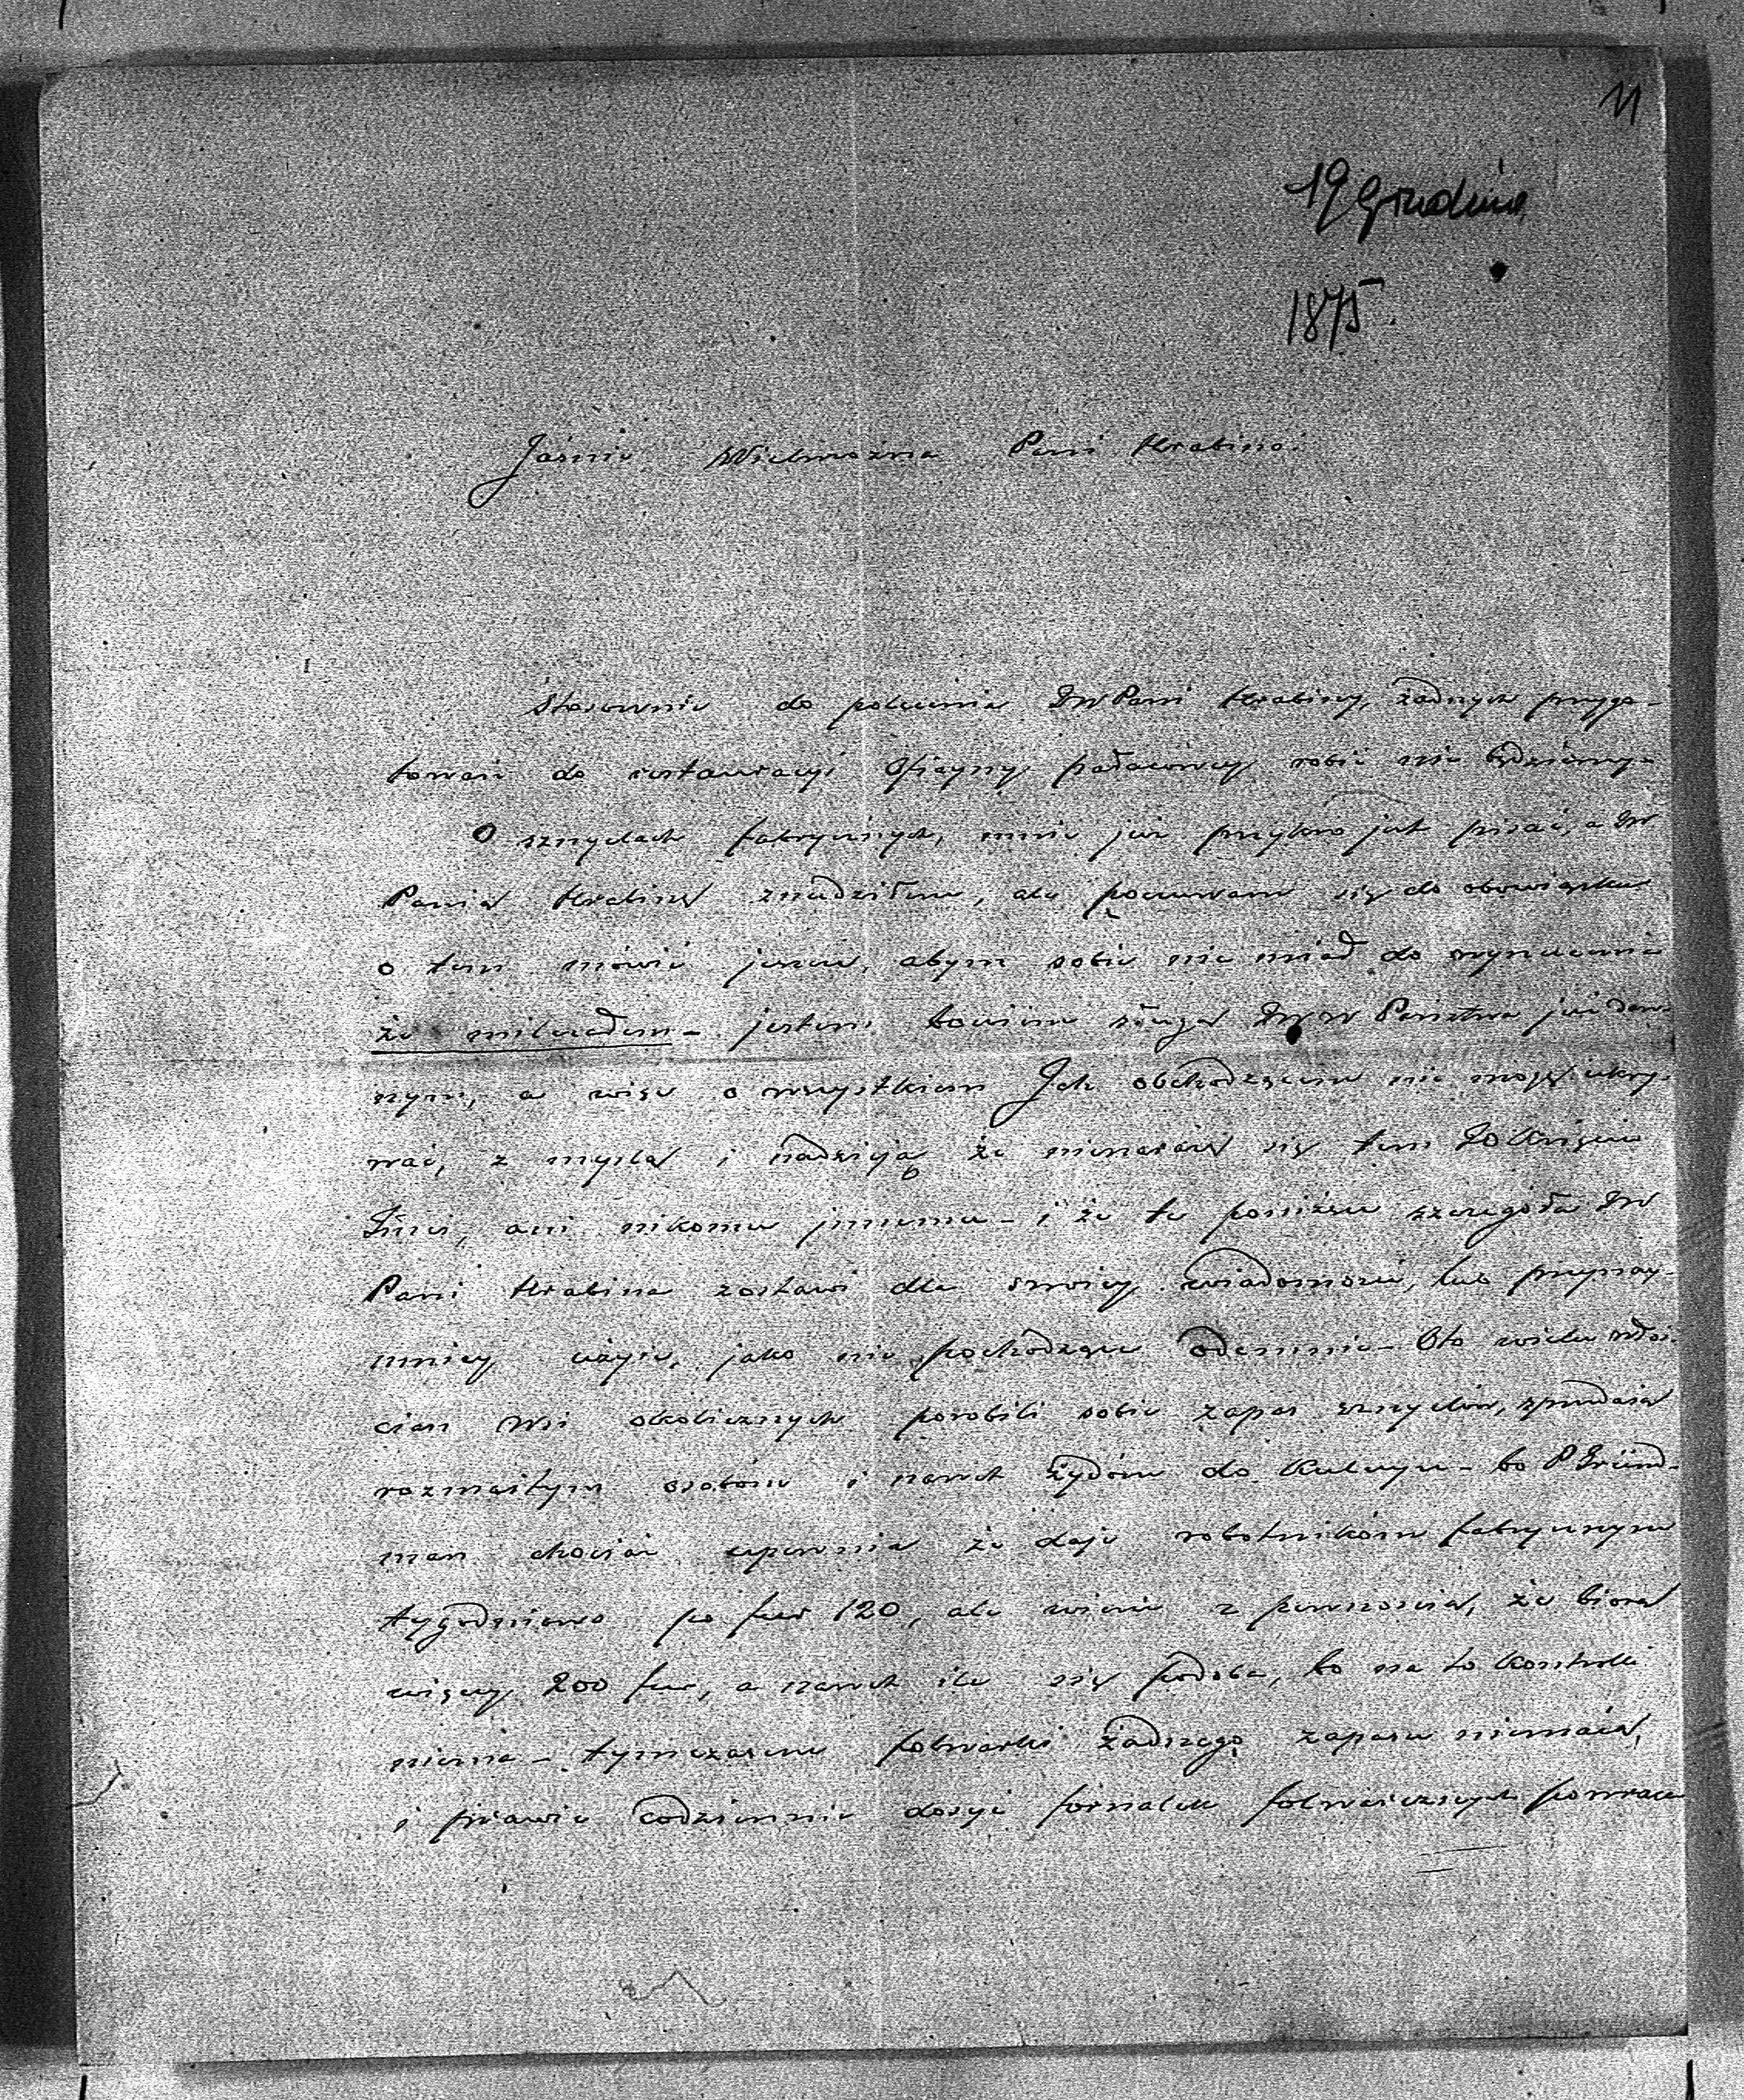 11
19 Grudnia
1875.
Jaśnie Wielmożna Pani Hrabino:
Stosownie do polecenia JWPani Hrabiny, żadnych przygo-
towań do restauracyi Oficyny pałacowey robić nie będziemy-
O sznyclach fabrycznych, mnie już przykro jest pisać, a JW
Panią Hrabinę znudziłem, ale poczuwam się do obowiązku
o tem mówić jeszcze, abym sobie nie miał do wyrzucenia
że milczałem - jestem bowiem sługą JWW Państwa już daw-
nym, a więc o wszystkiem Jch obchodzącem nie mogę ukry-
wać, z myślą i nadzieją że nienarażę się tem JO Księciu
Jmci, ani nikomu innemu - i że te poniższe szczegóła JW
Pani Hrabina zostawi dla swoiey wiadomości, lub przynay-
mniey użyie, jako nie pochodzące odemnie - Oto wielu włoś-
cian Wsi okolicznych porobili sobie zapas sznyclów, sprzedają
rozmaitym osobom i nawet żydom do - bo P Gründ-
man chociaż upewnia że daje robotnikom fabrycznym
tygodniowo po fur 120, ale wiem z pewnością, że biorą
więcey 200 fur, a nawet ile się podoba, bo na to Kontrolli
niema - tymczasem folwarki żadnego zapasu niemaią,
i prawie codziennie dosyć fornalek folwarcznych powraca